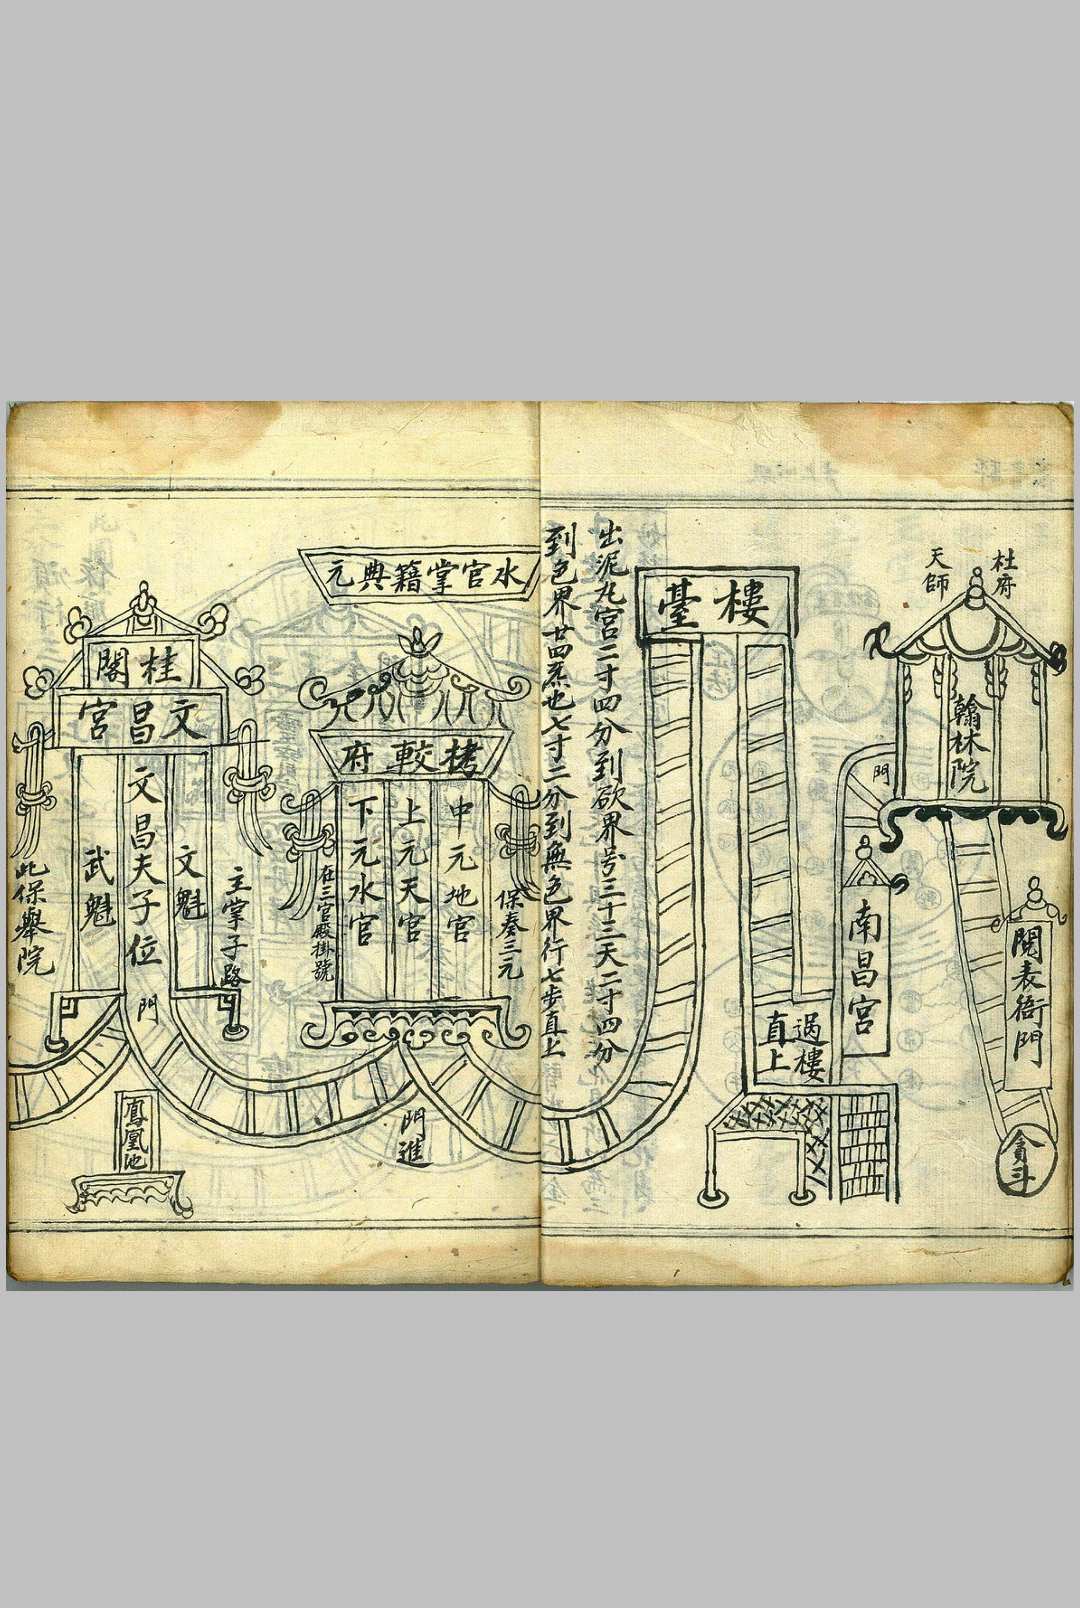 杜府
天師
翰林院
閱表衙門
貪斗
門
南昌宮
過樓
直上
樓臺
出泥丸宮二寸四分到欲界号三十三天二寸四分
到色界廿四炁也七寸二分到無色界行七步直上
水官掌籍典元
拷較府
中元地官
上元天官
下元水官
保奏三元
在三官殿掛號
門進
桂閣
文昌宮
文昌夫子位
文魁
武魁
主掌子路
此保舉院
門
鳳凰池